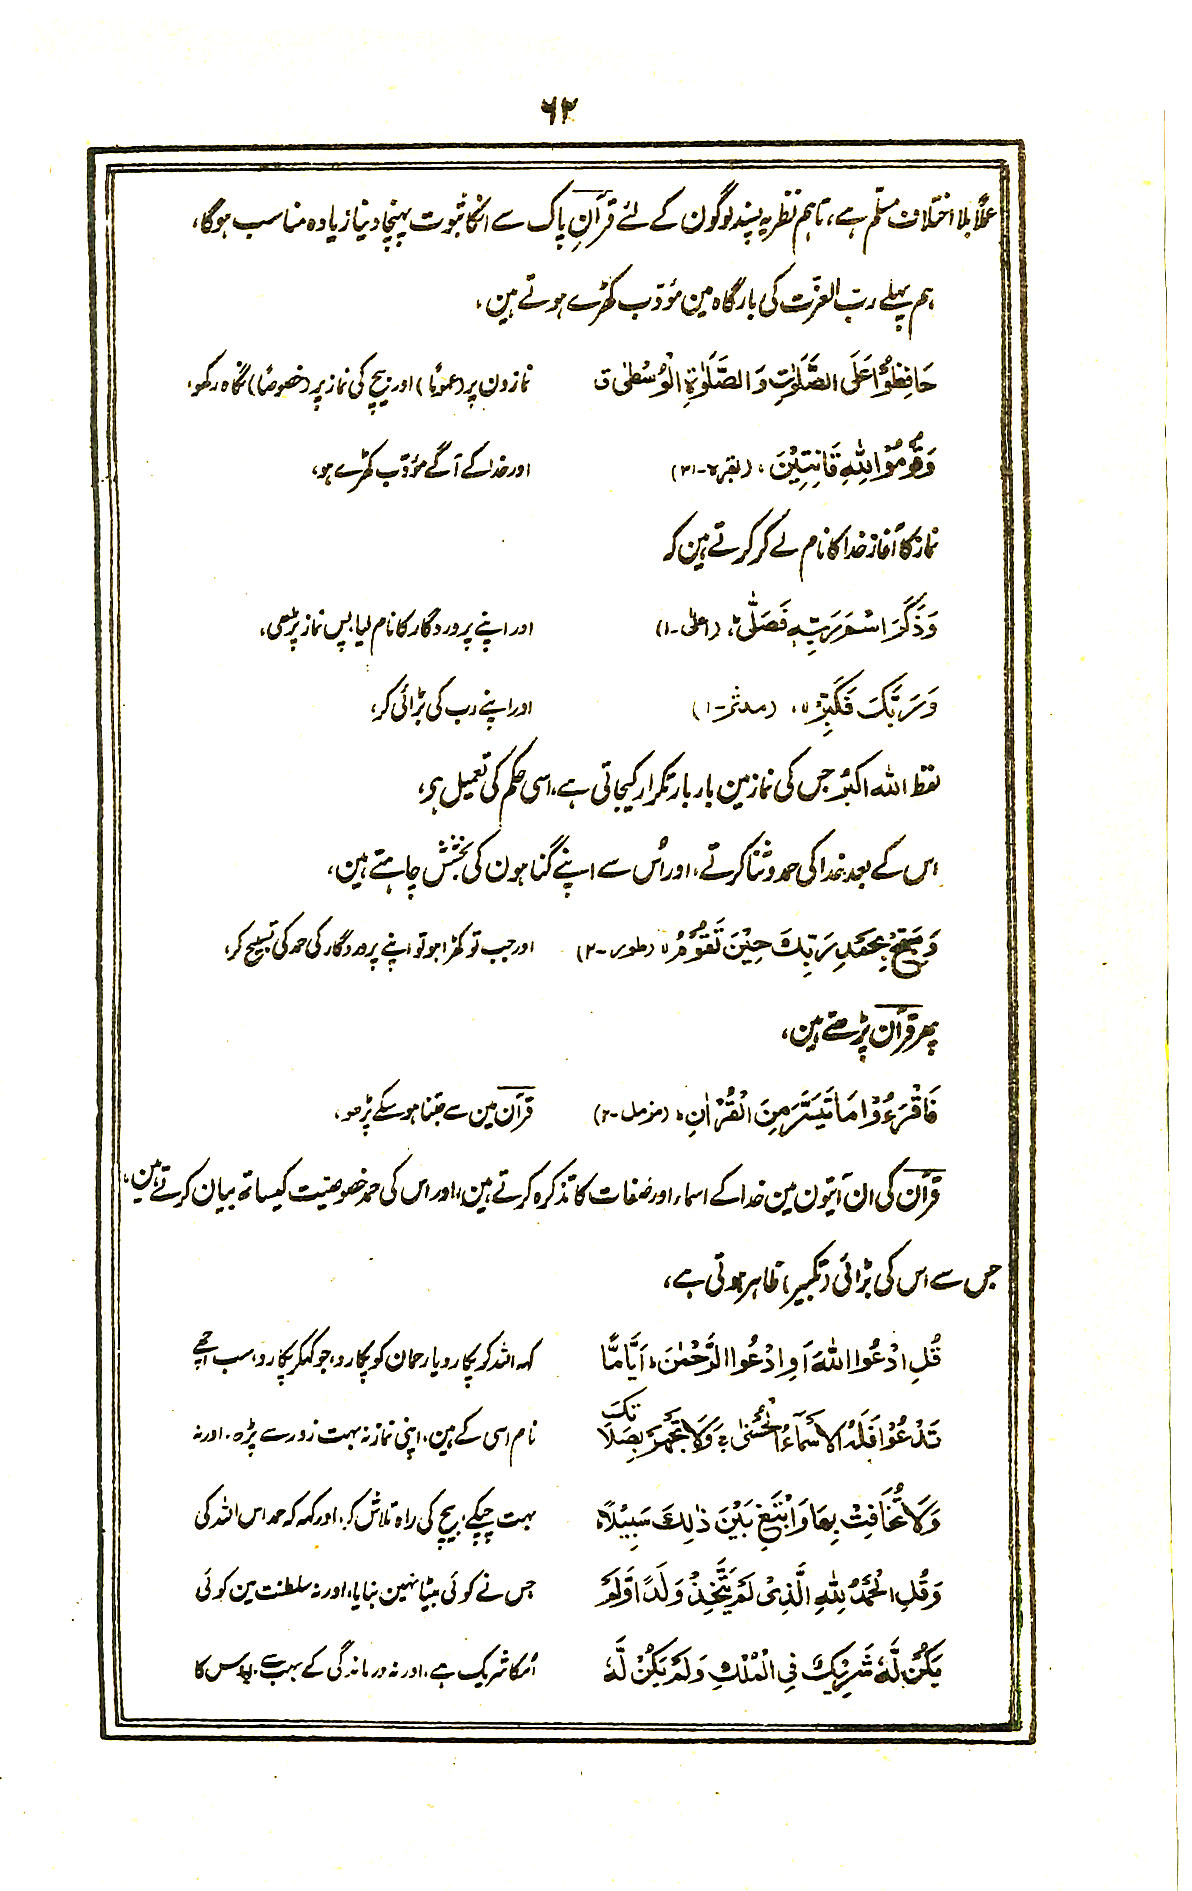 ۶۲
عملاً بلا اختلاف مسلم ہے، تاہم نظریہ پسند لوگون کے لئے قرآنِ پاک سے انکا ثبوت پہنچا دینا زیادہ مناسب ہوگا،
ہم پہلے ربّ العزّت کی بارگاہ مین مؤدّب کھڑے ہوتے ہین،
حَافِظُوْا عَلَى الصَّلَوٰتِ وَالصَّلٰوةِ الْوُسْطٰى ق نمازون پر (عمومًا) اور بیچ کی نماز پر (خصوصًا) نگاہ رکھو،
وَقُوْمُوْا لِلّٰهِ قَانِتِيْنَ، (بقرہ-۳۱) اور خدا کے آگے مؤدّب کھڑے ہو،
نماز کا آغاز خدا کا نام لے کر کرتے ہین کہ
وَذَكَرَ اسْمَ رَبِّهٖ فَصَلّٰى، (اعلیٰ-۱) اور اپنے پروردگار کا نام لیا پس نماز پڑھی،
وَرَبَّكَ فَكَبِّرْ ہ، (مدثر-۱) اور اپنے رب کی بڑائی کر،
لفظ اللہ اکبر جس کی نماز مین بار بار تکرار کیجاتی ہے، اسی حکم کی تعمیل ہی،
اس کے بعد خدا کی حمد و ثنا کرتے، اور اُس سے اپنے گناہون کی بخشش چاہتے ہین،
وَسَبِّحْ بِحَمْدِ رَبِّكَ حِيْنَ تَقُوْمُ ہ (طور-۲) اور جب تو کھڑا ہو تو اپنے پروردگار کی حمد کی تسبیح کر،
پھر قرآن پڑھتے ہین،
فَاقْرَءُوْا مَا تَيَسَّرَ مِنَ الْقُرْاٰنِ، (مزمل-۲) قرآن مین سے جتنا ہوسکے پڑھو،
قرآن کی ان آیتون مین خدا کے اسماء اور صفات کا تذکرہ کرتے ہین، اور اس کی حمد خصوصیت کیساتھ بیان کرتے ہین،
جس سے اس کی بڑائی (تکبیر) ظاہر ہوتی ہے،
قُلِ ادْعُوا اللّٰهَ اَوِ ادْعُوا الرَّحْمٰنَ، اَيًّا مَّا کہہ اللہ کو پکارو یا رحمان کو پکارو، جو کہکر پکارو، سب اچھے
تَدْعُوْا فَلَهُ الْاَسْمَآءُ الْحُسْنٰى، وَلَا تَجْهَرْ بِصَلَاتِكَ نام اسی کے ہین، اپنی نماز نہ بہت زور سے پڑھ، اور نہ
وَلَا تُخَافِتْ بِهَا وَابْتَغِ بَيْنَ ذٰلِكَ سَبِيْلًا، بہت چپکے، بیچ کی راہ تلاش کر، اور کہہ کہ حمد اس اللہ کی
وَقُلِ الْحَمْدُ لِلّٰهِ الَّذِىْ لَمْ يَتَّخِذْ وَلَدًا وَّلَمْ جس نے کوئی بیٹا نہین بنایا، اور نہ سلطنت مین کوئی
يَكُنْ لَّهٗ شَرِيْكٌ فِى الْمُلْكِ وَلَمْ يَكُنْ لَّهٗ اُسکا شریک ہے، اور نہ درماندگی کے سبب سے اس کا